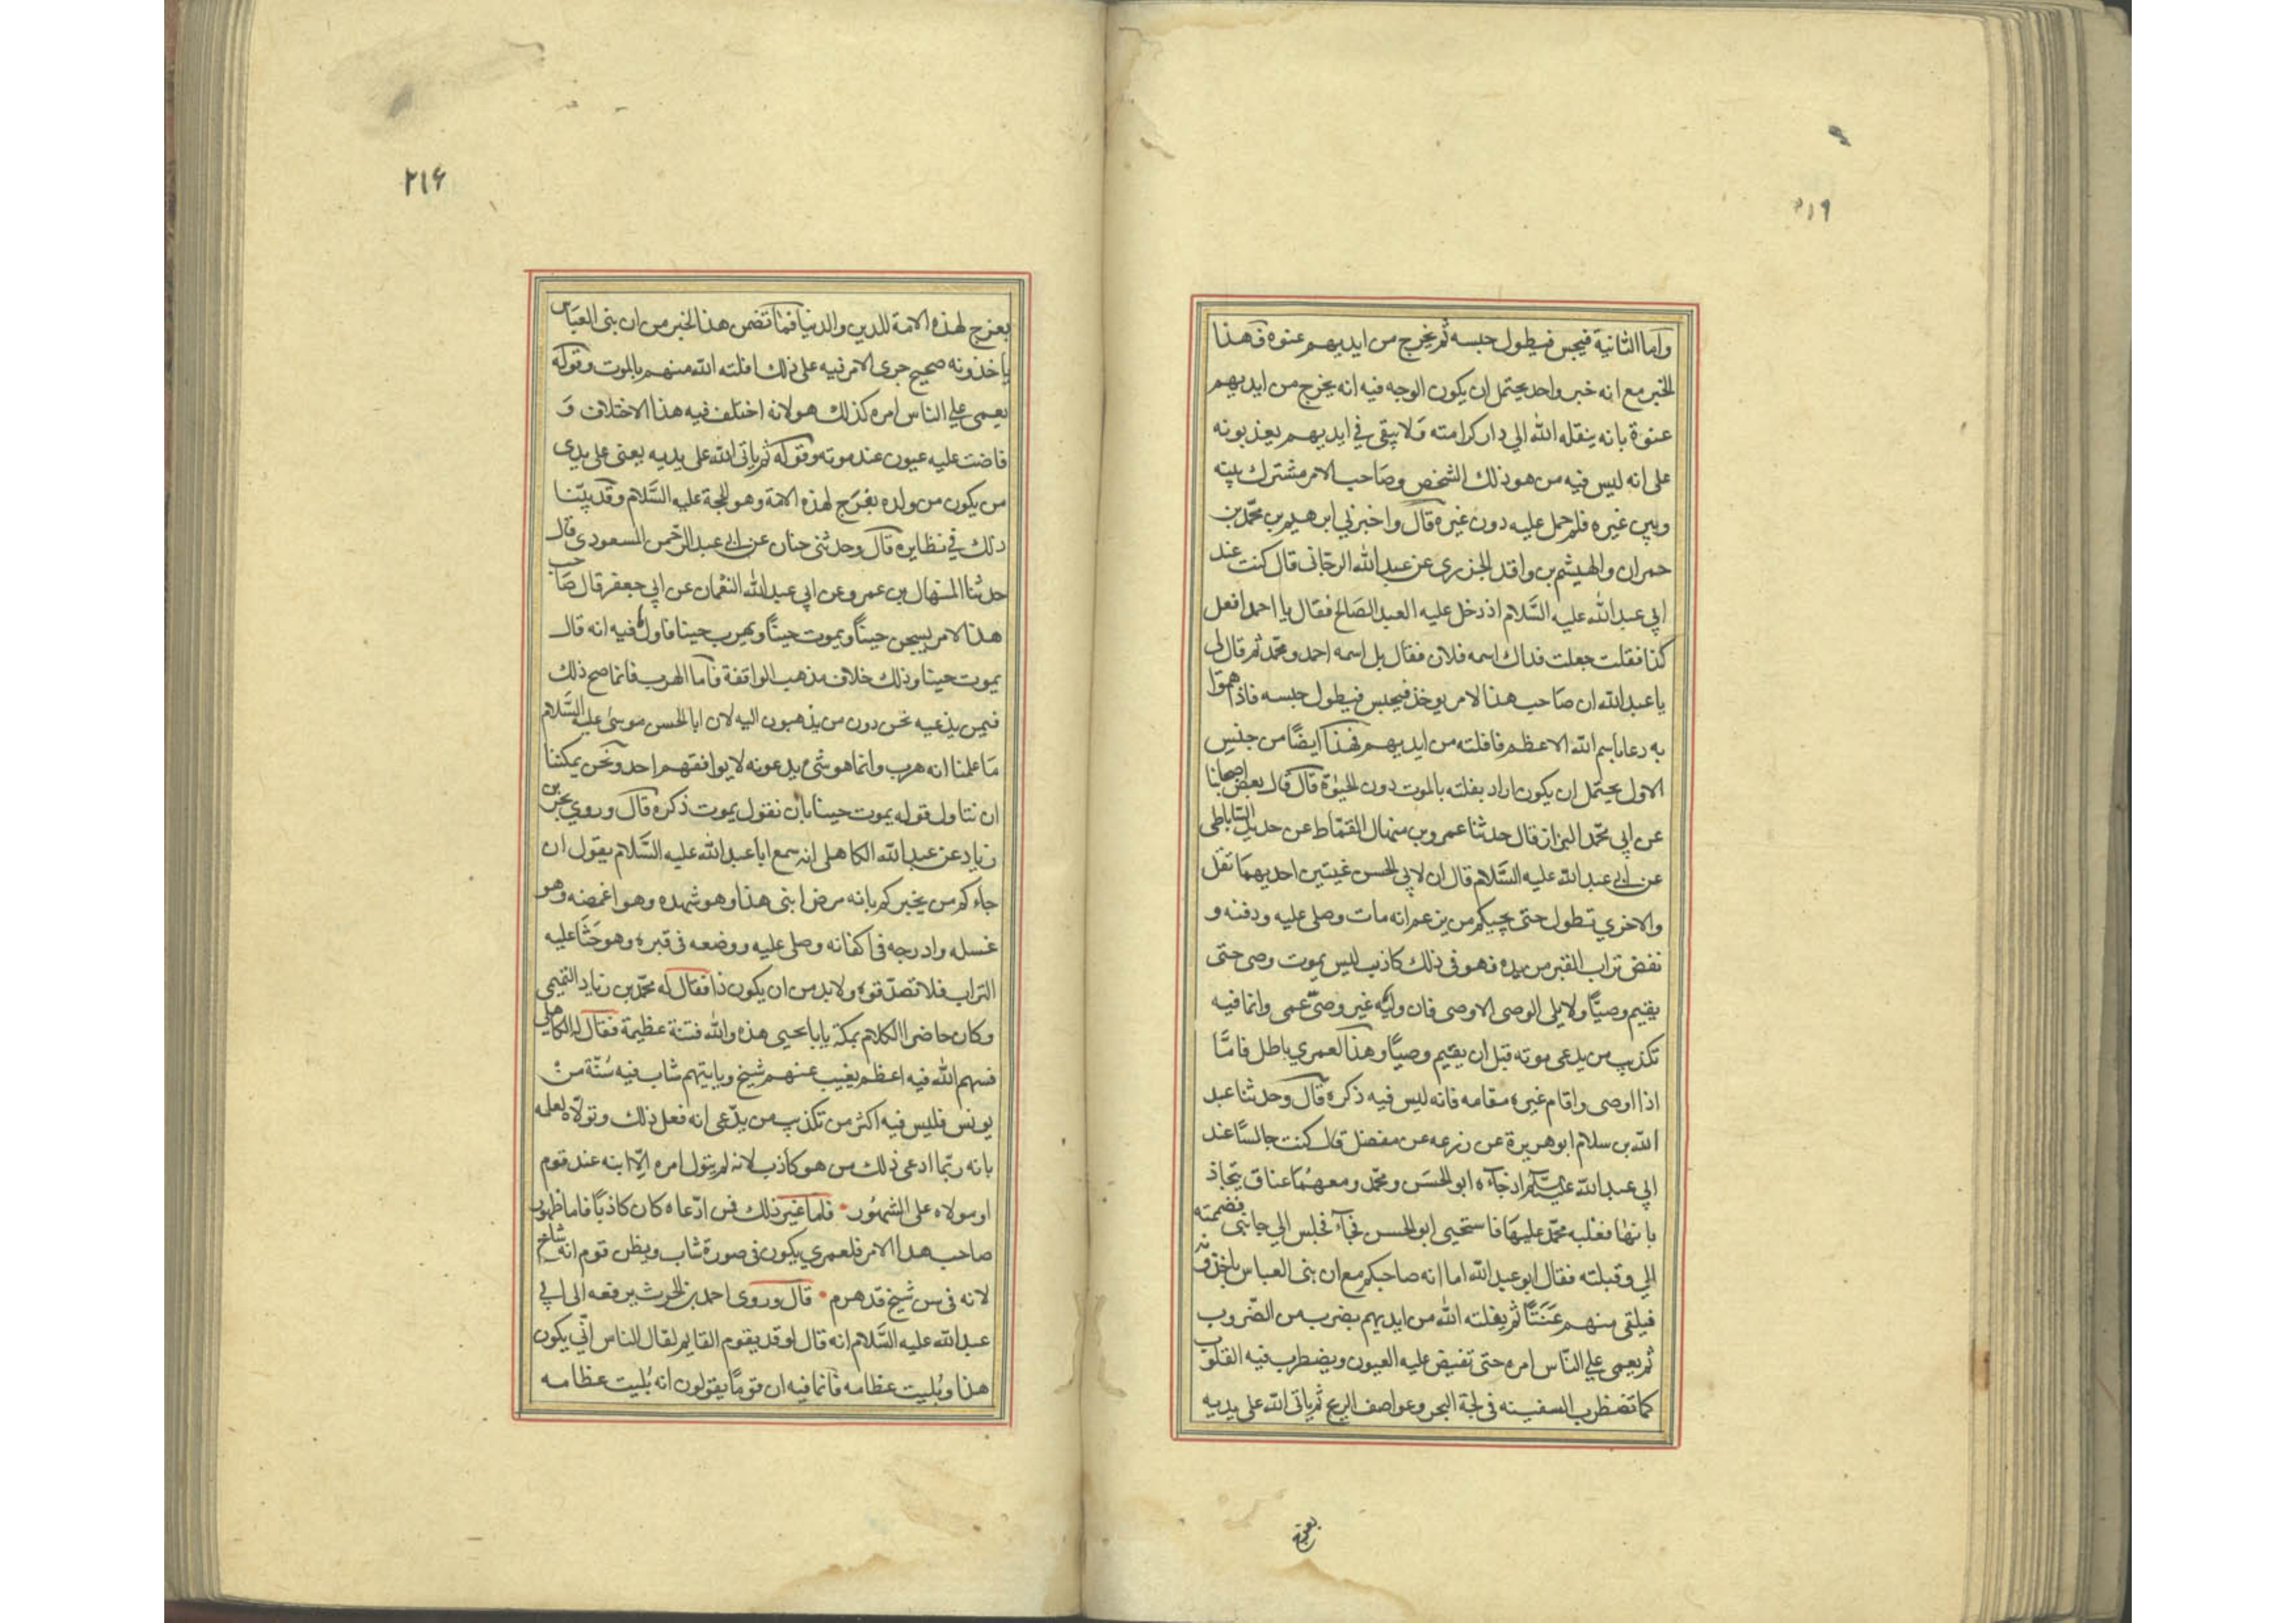 واما الثانية فيحبس فيطول حبسه ثم يخرج من ايديهم عنوة فهذا
الخبر مع انه خبر واحد يحتمل ان يكون الوجه فيه انه يخرج من ايديهم
عنوة بانه ينقله الله الي دار كرامته ولا يبقي في ايديهم يعذبونه
علي انه ليس فيه من هو ذلك الشخص وصاحب الامر مشترك بينه
وبين غيره فلم حمل عليه دون غيره قال واخبرني ابرهيم بن محمد بن
حمران والهيثم بن واقد الجزري عن عبد الله الرجاني قال كنت عند
ابي عبد الله عليه السلام اذ دخل عليه العبد الصالح فقال يا احمد افعل
كذا فقلت جعلت فداك اسمه فلان فقال بل اسمه احمد ومحمد ثم قال لي
يا عبد الله ان صاحب هذا الامر يوخذ فيحبس فيطول حبسه فاذا هموا
به دعا باسم الله الاعظم فافلته من ايديهم فهذا ايضا من جنس
الاول يحتمل ان يكون اراد بفلته بالموت دون الحيوة قال قال بعض اصحابنا
عن ابي محمد البزاز قال حدثنا عمرو بن منهال القماط عن حديد الساباطي
عن ابي عبد الله عليه السلام قال ان لابي الحسن غيبتين احديهما تقل
والاخري تطول حتي يجيكم من يزعم انه مات وصلي عليه ودفنه و
نفض تراب القبر من يده فهو في ذلك كاذب ليس يموت وصي حتي
يقيم وصيا ولا يلي الوصي الا وصي فان وليه غير وصي عمي وانما فيه
تكذيب من يدعي موته قبل ان يقيم وصيا وهذا لعمري باطل فاما
اذا اوصي واقام غيره مقامه فانه ليس فيه ذكره قال وحدثنا عبد
الله بن سلام ابو هريرة عن زرعه عن مفضل قال كنت جالسا عند
ابي عبد الله عليه السلام اذ جآءه ابو الحسن ومحمد ومعهما عناق يتجاذ
بانها فغلبه محمد عليها فاستحيي ابو الحسن فجآء فجلس الي جانبي فضممته
الي وقبلته فقال ابو عبد الله اما انه صاحبكم مع ان بني العباس ياخذونه
فيلقي منهم عنتا ثم يفلته الله من ايديهم بضرب من الضروب
ثم يعمي علي الناس امره حتي تفيض عليه العيون ويضطرب فيه القلوب
كما تضطرب السفينه في لجة البحر وعواصف الريح ثم ياتي الله علي يديه
بفرج
٢١۶
بفرج لهذه الامة للدين والدنيا فما تضمن هذا الخبر من ان بني العباس
ياخذونه صحيح جري الامر فيه علي ذلك افلته الله منهم بالموت وقوله
يعمي علي الناس امره كذلك هو لانه اختلف فيه هذا الاختلاف و
فاضت عليه عيون عند موته وقوله ثم ياتي الله علي يديه يعني علي يدي
من يكون من ولده بفرج لهذه الامة وهو الحجة عليه السلام وقد بينا
ذلك في نظايره قال وحدثني حنان عن ابي عبد الرحمن المسعودي قال
حدثنا المنهال بن عمرو عن ابي عبد الله النعمان عن ابي جعفر قال صاحب
هذا الامر يسجن حينا ويموت حينا ويهرب حينا فاول ما فيه انه قال
يموت حينا وذلك خلاف مذهب الواقفة فاما الهرب فانما صح ذلك
فيمن يدعيه نحن دون من يذهبون اليه لان ابا الحسن موسي عليه السلام
ما علمنا انه هرب وانما هو شيء يدعونه لا يوافقهم احد ونحن يمكننا
ان نتاول قوله يموت حينا بان نقول يموت ذكره قال وروي بحر بن
زياد عن عبد الله الكاهلي انه سمع ابا عبد الله عليه السلام يقول ان
جاءكم من يخبركم بانه مرض ابني هذا وهو شهده وهو اغمضه وهو
غسله وادرجه في اكفانه وصلي عليه ووضعه في قبره وهو حثا عليه
التراب فلا تصدقوه ولا بد من ان يكون ذا فقال له محمد بن زياد التميمي
وكان حاضر الكلام بمكة يا با يحيي هذه والله فتنة عظيمة فقال له الكاهلي
فسهم الله فيه اعظم يغيب عنهم شيخ وياتيهم شاب فيه سنة من
يونس فليس فيه اكثر من تكذيب من يدعي انه فعل ذلك وتولاه لعلمه
بانه ربما ادعي ذلك من هو كاذب لانه لم يتول امره الا ابنه عند قوم
او مولاه علي المشهور فاما غير ذلك فمن ادعاه كان كاذبا فاما ظهور
صاحب هذا الامر فلعمري يكون في صورة شاب ويظن قوم انه شاخ
لانه في سن شيخ قد هرم قال وروي احمد بن الحرث يرفعه الي ابي
عبد الله عليه السلام انه قال لو قد يقوم القايم لقال الناس اني يكون
هذا وبليت عظامه فانما فيه ان قوما يقولون انه بليت عظامه